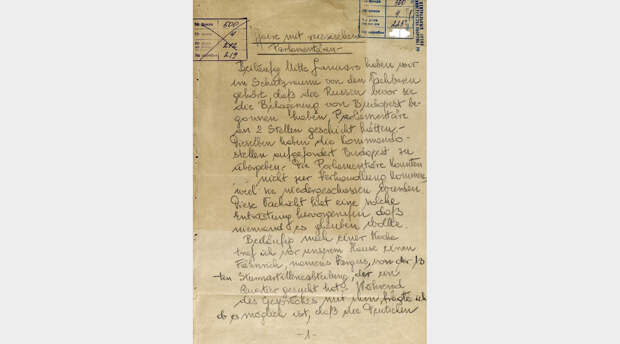 600
4
242
219
4
225
mit russischen
Parlamentären
Beiläufig Mitte Januars haben wir
im Schutzraume von den Nachbaren
gehört, daß die Russen bevor sie
die Belagerung von Budapest be-
gonnen haben, Parlamentäre
an 2 Stellen geschickt hätten.
Dieselben haben die Kommando-
stellen aufgefordert Budapest zu
übergeben. Die Parlamentäre konnten
nicht zur Verhandlung kommen,
weil sie niedergeschossen
Diese Nachricht hat eine solche
Entrüstung hervorgerufen, daß
niemand es glauben wollte.
Beiläufig nach einer Woche
traf ich vor unserem Hause einen
Fähnrich, namens von der 13
-ten Sturmartillerieabteilung, der ein
Quartier gesucht hat. Während
des Gespräches mit ihm fragte ich
ob es möglich ist, daß die Deutschen
-1-